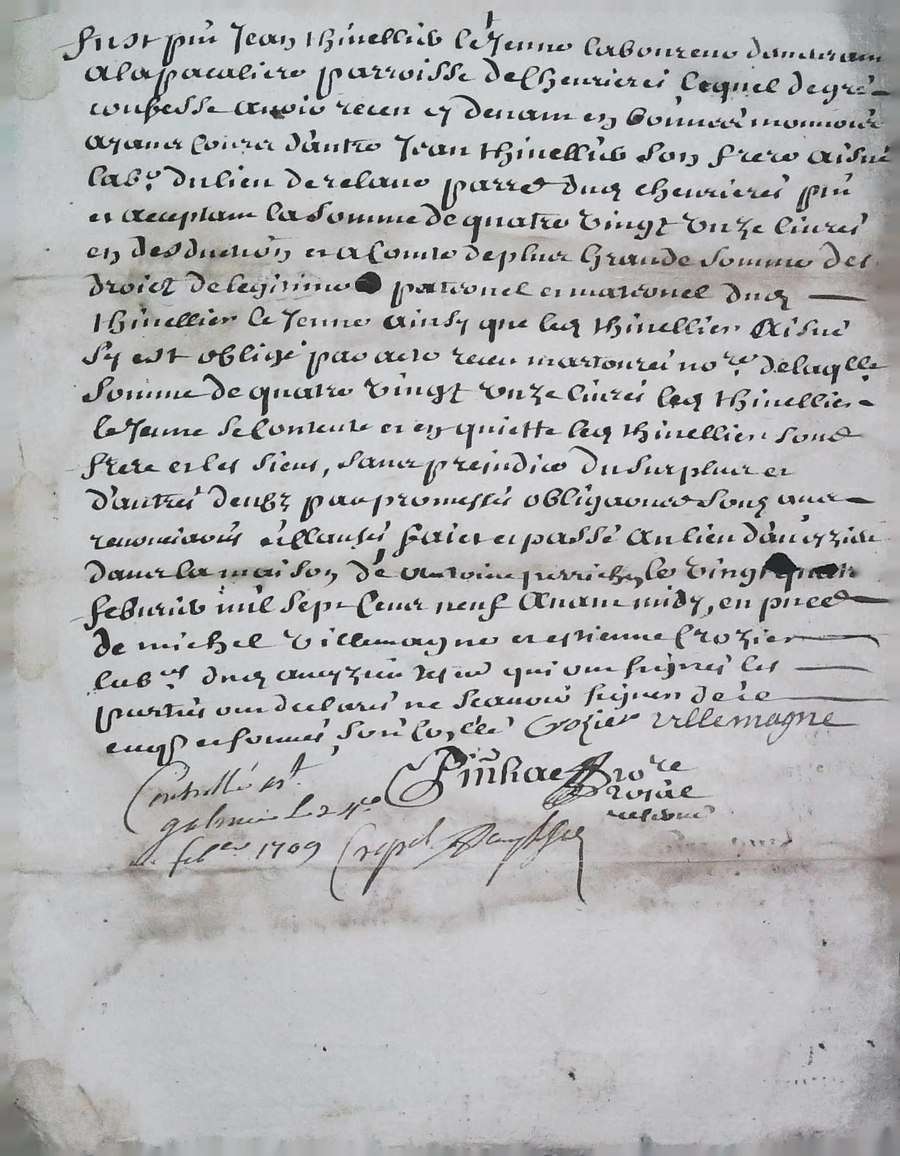 fust pnt Jean thivellier le Jenne laboureur demeurant
a la pacaliere parroisse de Chenrieres lequel de gré
confesse avoir receu cy devant en bonnes monnoies
ayant cours d'autre Jean thivellier son frere aisné
labr du lieu de parre dud chenrieres pnt
et aceptant la somme de quatre vingt unze livres
en desduction et a comte de plus Grande somme des
droict de legitime paternel et maternel dud
thivellier le Jenne ainsy que led thivellier aisné
s'y est obligé par acte receu no.re de laqlle
somme de quatre vingt unze livres led thivellier
le Jenne se contente et en quitte led thivellier sond
frere et les siens, sans prejudice du surplus et
d'autres deubz par promesses obligaons soubz
renonciaons clauses faict et passé au lieu
dans la maison de Antoine le vingt
febvrier mil sept cens neuf avant midy, en pnce
de michel villemagne et estienne Crozier
labrs dud qui ont signés les
parties ont declarés ne scavoir signer de ce
enqs et sonnes Crozier villemagne
no.re
Controllé a st
galmier le 24e royal
febver 1709